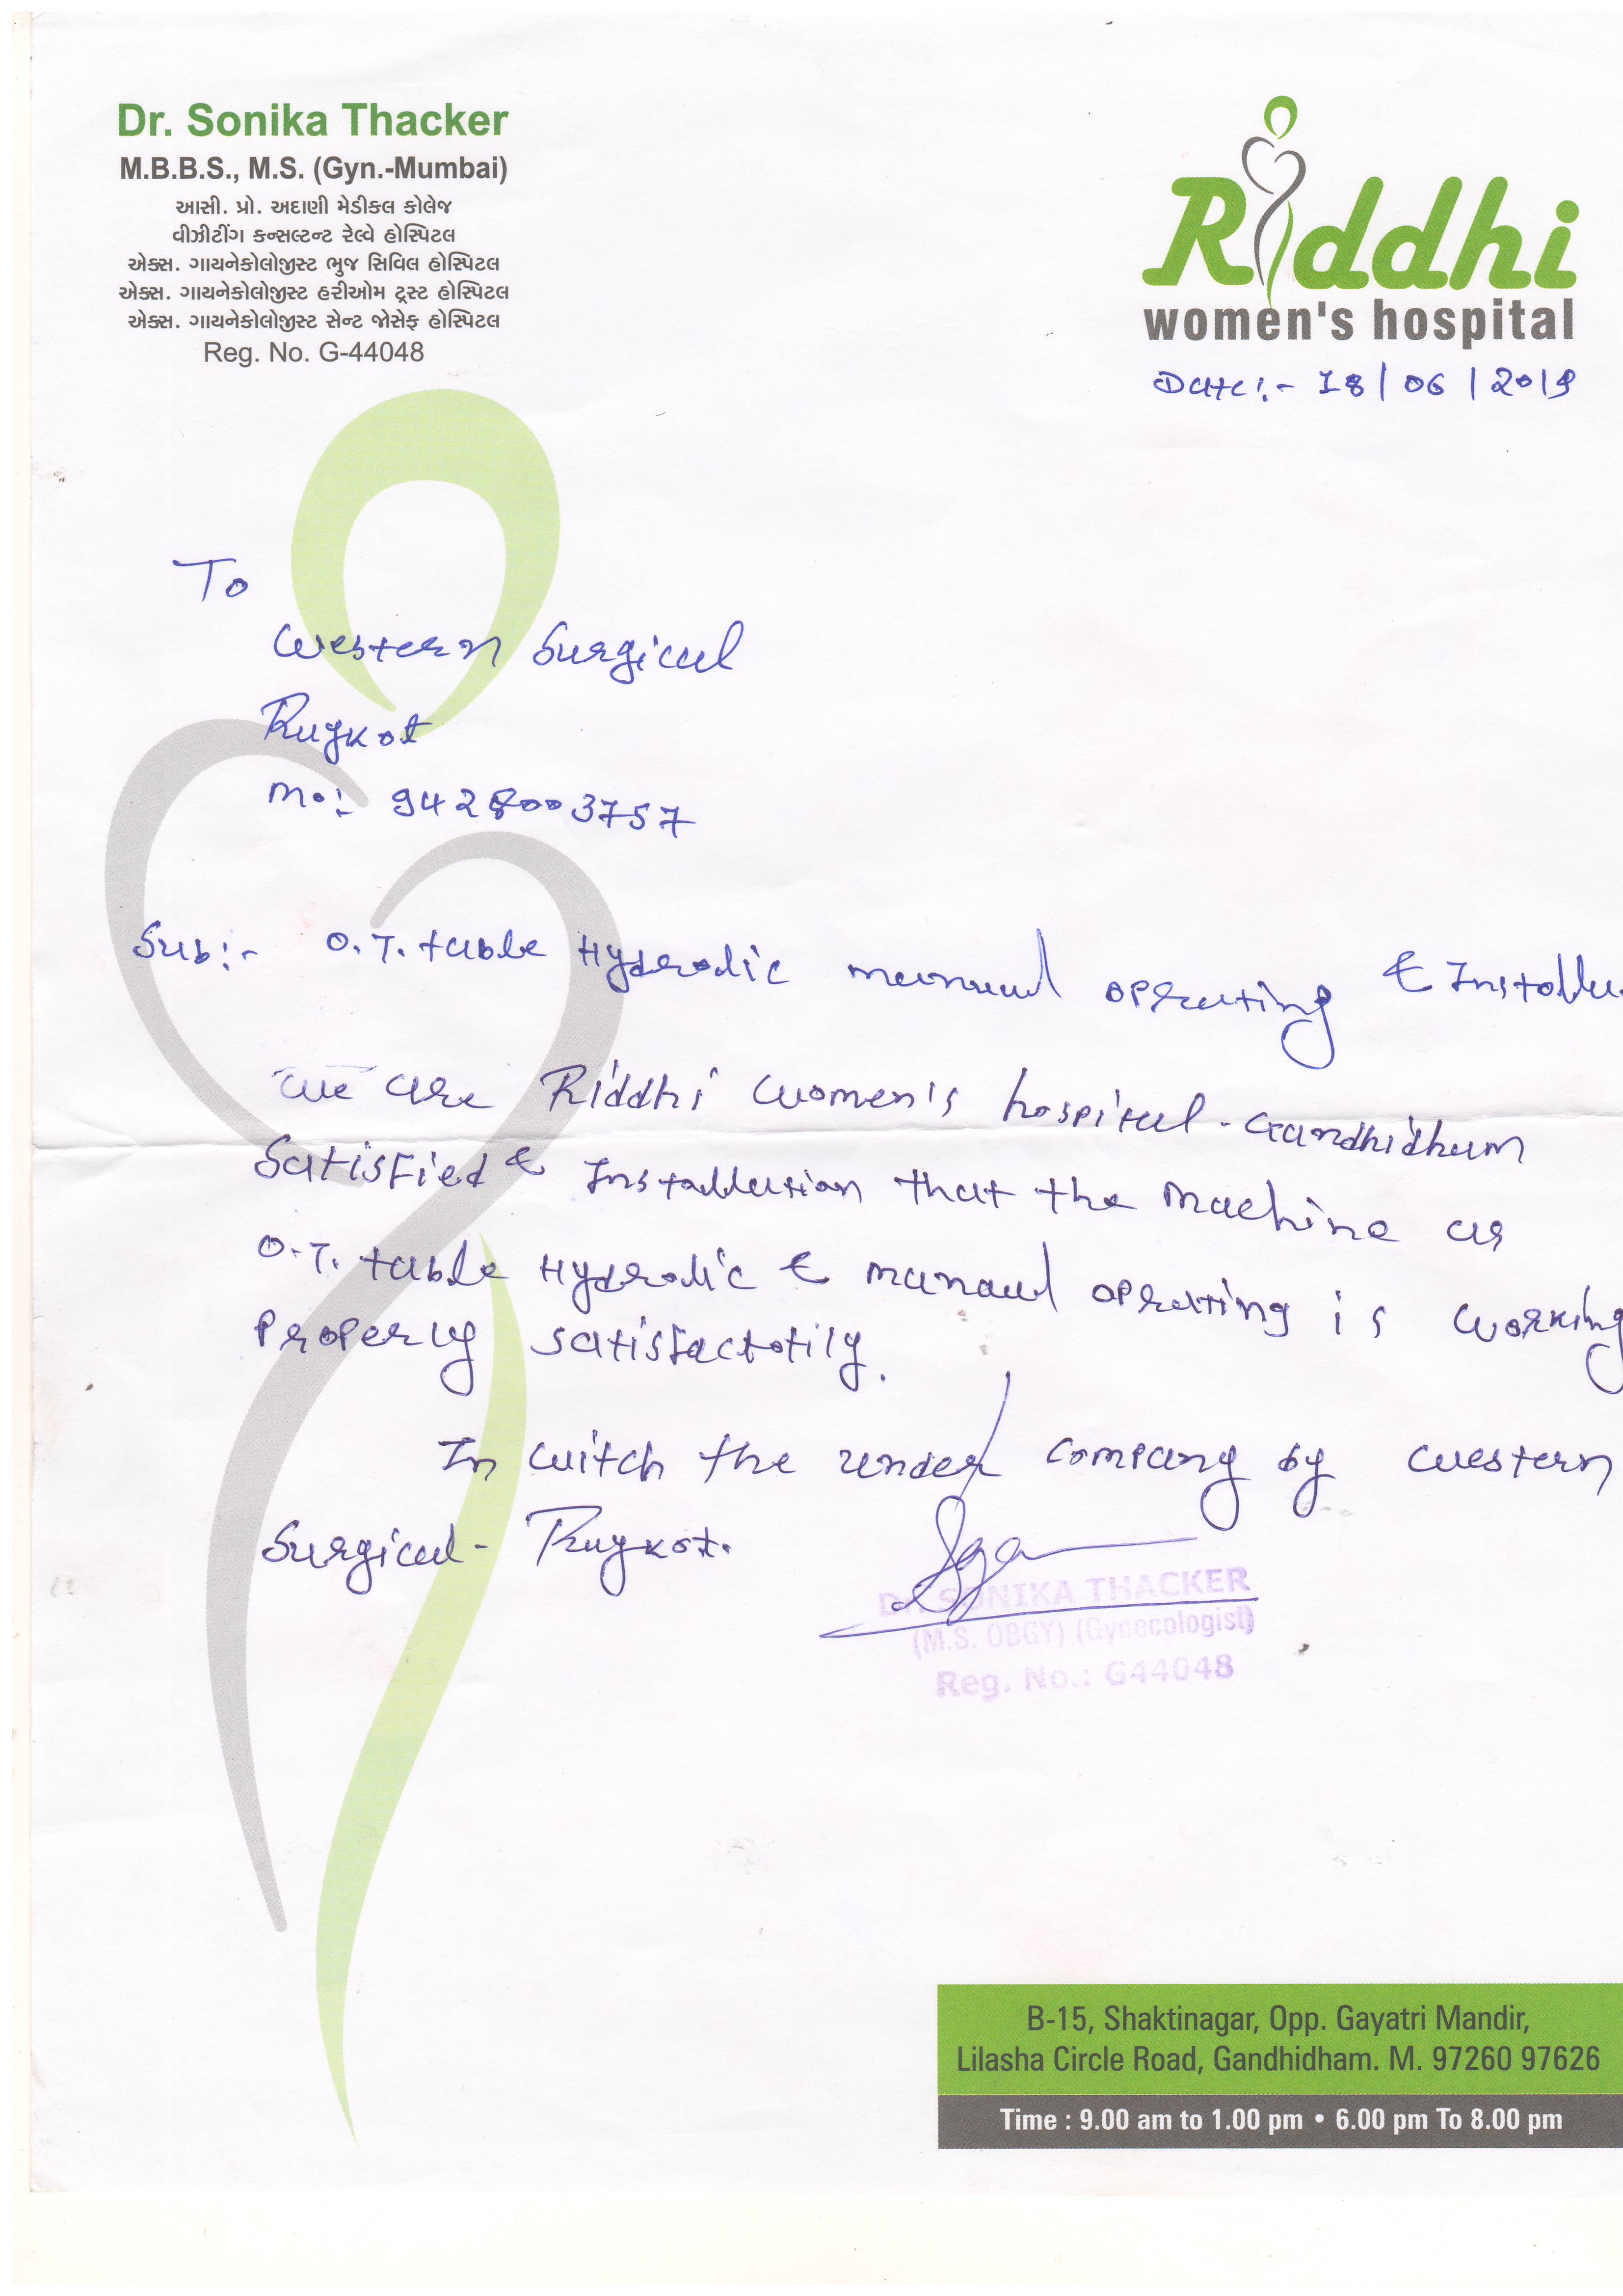 Dr. Sonika Thacker
M.B.B.S., M.S. (Gyn.-Mumbai)
આસી. પ્રો. અદાણી મેડીકલ કોલેજ
વીઝીટીંગ કન્સલ્ટન્ટ રેલ્વે હોસ્પિટલ
એક્સ. ગાયનેકોલોજીસ્ટ ભુજ સિવિલ હોસ્પિટલ
એક્સ. ગાયનેકોલોજીસ્ટ હરીઓમ ટ્રસ્ટ હોસ્પિટલ
એક્સ. ગાયનેકોલોજીસ્ટ સેન્ટ જોસેફ હોસ્પિટલ
Reg. No. G-44048
Riddhi
women's hospital
Date:- 18/06/2019
To
Western Surgical
Rajkot
mo:- 9428003757
Sub:- O.T. table Hydrolic manaul oprating & Installa
We are Riddhi women's hospital - Gandhidham
Satisfied & Installation that the machine as
O.T. table Hydrolic & manaul oprating is working
Properly satisfactotily.
In witch the under company by western
Surgical - Rajkot.
Dr. SONIKA THACKER
(M.S. OBGY) (Gynecologist)
Reg. No.: G44048
B-15, Shaktinagar, Opp. Gayatri Mandir,
Lilasha Circle Road, Gandhidham. M. 97260 97626
Time : 9.00 am to 1.00 pm • 6.00 pm To 8.00 pm